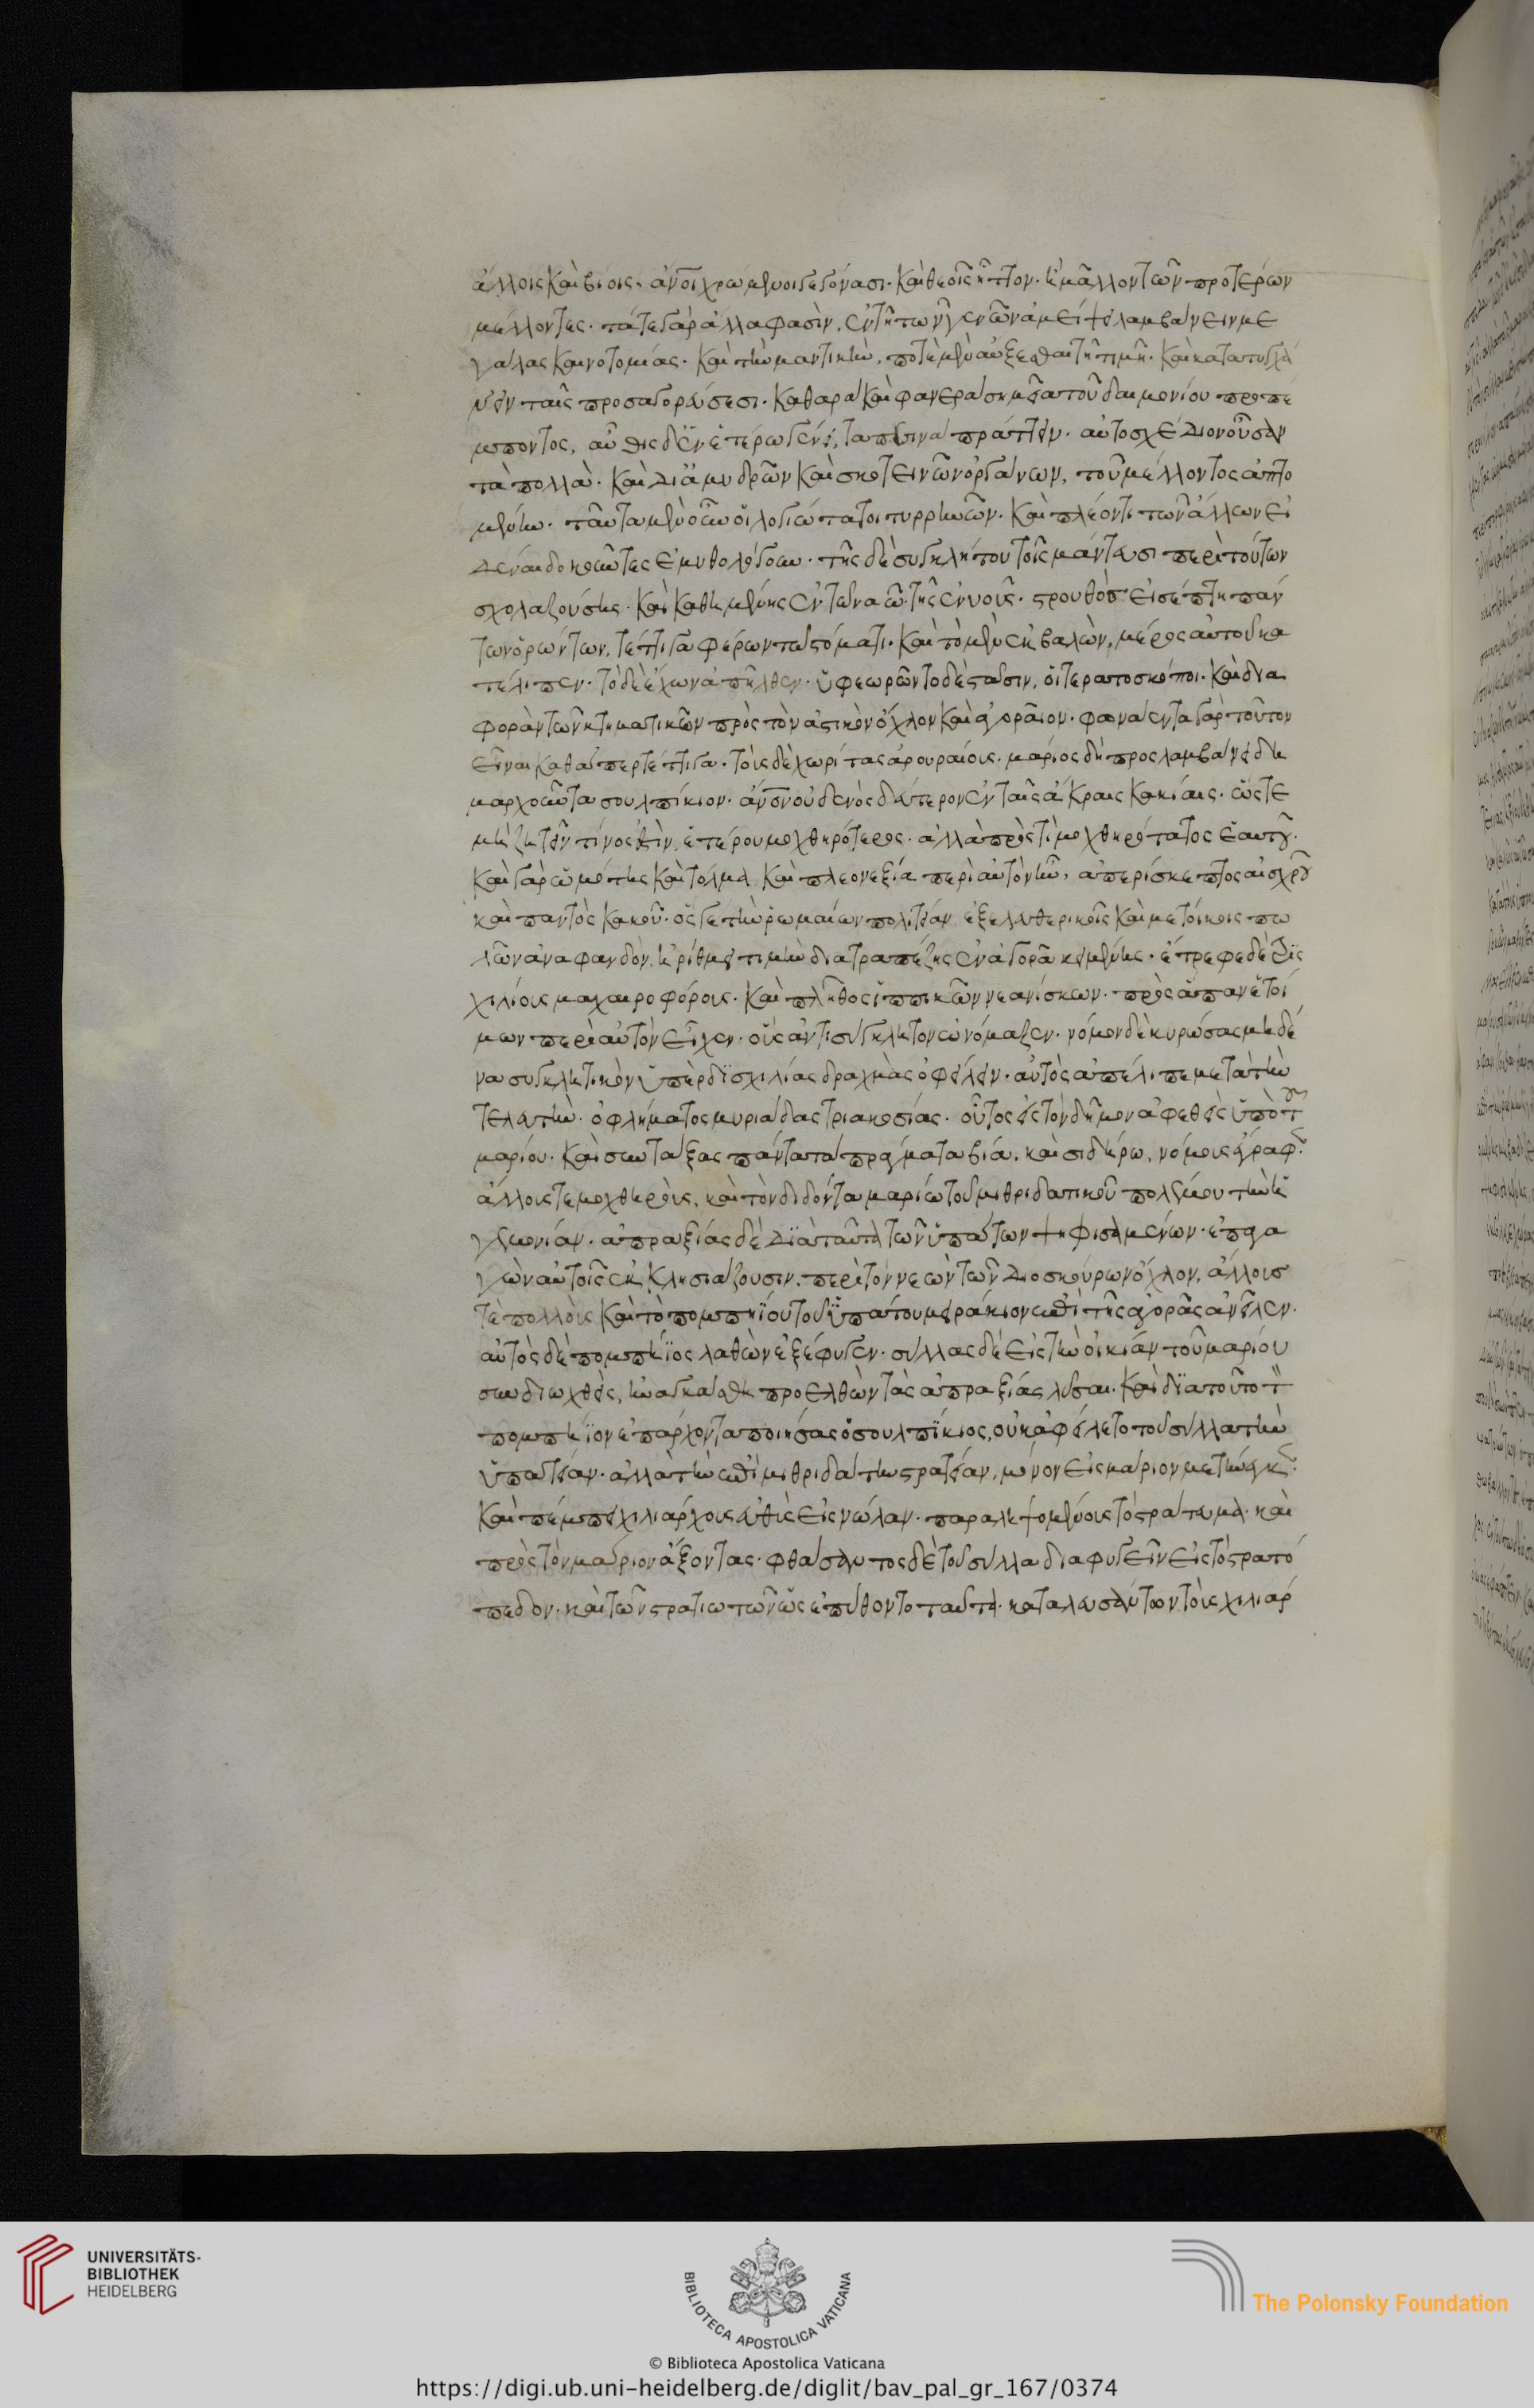 ἄλλοις καὶ βίοις. ἄνοι χρώμενοι γεγόνασι. καὶ θεοῖς ἧττον. ἢ μᾶλλον τῶν προτέρων
μέλλοντες. τά τε γὰρ ἄλλα φασὶν, ἐν τῆ τῶν γενῶν ἀμείψει λαμβάνειν με
γάλας καινοτομίας. καὶ τὴν μαντικὴν, ποτὲ μὲν αὔξεσθαι τῆ τιμῆ. καὶ κατατυγχά
νειν ταῖς προσαγορεύσεσι. καθαρὰ καὶ φανερὰ σημεῖα τοῦ δαιμονίου προπέ
μποντος, αὖθις δ' ἐν ἑτέρω γένει, ταπεινὰ πράττειν. αὐτοσχέδιον οὖσαν
τὰ πολλὰ. καὶ δι' ἀμυδρῶν καὶ σκοτεινῶν ὀργάνων, τοῦ μέλλοντος ἁπτο
μένην. ταῦτα μὲν οὖν οἱ λογιώτατοι τυρρηνῶν. καὶ πλέον τι τῶν ἄλλων εἰ
δέναι δοκοῦντες ἐμυθολόγουν. τῆς δὲ συγκλήτου τοῖς μάντεσι περὶ τούτων
σχολαζούσης. καὶ καθημένης ἐν τῶ ναῶ τῆς ἐνυοῦς. στρουθὸς εἰσέπτη πάν
των ὁρώντων, τέττιγα φέρων τῶ στόματι. καὶ τὸ μὲν ἐκβαλὼν, μέρος αὐτοῦ κα
τέλιπεν. τὸ δὲ ἔχων ἀπῆλθεν. ὑφεωρῶντο δὲ στάσιν, οἱ τερατοσκόποι. καὶ δια
φορὰν τῶν κτηματικῶν πρὸς τὸν ἀστικὸν ὄχλον καὶ ἀγοραῖον. φωνάεντα γὰρ τοῦτον
εἶναι καθάπερ τέττιγα. τοὺς δὲ χωρίτας ἀρουραίους. μάριος δὴ προσλαμβάνει δη
μαρχοῦντα σουλπίκιον. ἄνον οὐδενὸς δεύτερον ἐν ταῖς ἄκραις κακίαις. ὥστε
μὴ ζητεῖν τίνος ἐστὶν, ἑτέρου μοχθηρότερος. ἀλλὰ πρὸς τὶ μοχθηρότατος ἑαυτοῦ.
καὶ γὰρ ὠμότης καὶ τόλμα καὶ πλεονεξία περὶ αὐτὸν ἦν, ἀπερίσκεπτος αἰσχροῦ
καὶ παντὸς κακοῦ. ὅς γε τὴν ῥωμαίων πολιτείαν ἐξελευθερικοῖς καὶ μετοίκοις πω
λῶν ἀναφανδὸν, ἠρίθμει τιμὴν διὰ τραπέζης ἐν ἀγορᾶ κειμένης. ἔτρεφε δὲ τρὶς
χιλίους μαχαιροφόρους. καὶ πλῆθος ἱππικῶν νεανίσκων. πρὸς ἅπαν ἑτοί
μων περὶ αὐτὸν εἶχεν. οὓς ἀντισύγκλητον ὠνόμαζεν. νόμον δὲ κυρώσας μηδέ
να συγκλητικὸν ὑπὲρ δισχιλίας δραχμὰς ὀφείλειν. αὐτὸς ἀπέλιπε μετὰ τὴν
τελευτὴν. ὀφλήματος μυριάδας τριακοσίας. οὗτος εἰς τὸν δῆμον ἀφεθεὶς ὑπὸ τοῦ
μαρίου. καὶ συνταράξας πάντα τὰ πράγματα βία. καὶ σιδήρω, νόμους ἔγραφε
ἄλλους τε μοχθηροὺς, καὶ τὸν διδόντα μαρίω τοῦ μιθριδατικοῦ πολέμου τὴν ἡ
γεμονίαν. ἀπραξίας δὲ διὰ ταῦτα τῶν ὑπάτων ψηφισαμένων. ἐπαγα
γὼν αὐτοῖς ἐκκλησιάζουσιν, περὶ τὸν νεὼν τῶν διοσκούρων ὄχλον, ἄλλους
τὲ πολλοὺς καὶ τὸ πομπηΐου τοῦ ὑπάτου μειράκιον ἐπὶ τῆς ἀγορᾶς ἀνεῖλεν.
αὐτὸς δὲ πομπήϊος λαθὼν ἐξέφυγεν. σύλλας δὲ εἰς τὴν οἰκίαν τοῦ μαρίου
συνδιωχθεὶς, ἠναγκάσθη προελθὼν τὰς ἀπραξίας λῦσαι. καὶ διὰ τοῦτο τὸν
πομπήϊον ἐπάρχοντα ποιήσας ὁ σουλπίκιος, οὐκ ἀφείλετο τοῦ σύλλα τὴν
ὑπατείαν. ἀλλὰ τὴν ἐπὶ μιθριδάτην στρατείαν, μόνον εἰς μάριον μετήνεγκε.
καὶ πέμπει χιλιάρχους εὐθὺς εἰς νώλαν. παραληψομένους τὸ στράτευμα. καὶ
πρὸς τὸν μάριον ἄξοντας. φθάσαντος δὲ τοῦ σύλλα διαφυγεῖν εἰς τὸ στρατό
πεδον. καὶ τῶν στρατιωτῶν ὡς ἐπύθοντο ταῦτα. καταλευσάντων τοὺς χιλιάρ
UNIVERSITÄTS-
BIBLIOTHEK
HEIDELBERG
BIBLIOTECA APOSTOLICA VATICANA
The Polonsky Foundation
© Biblioteca Apostolica Vaticana
https://digi.ub.uni-heidelberg.de/diglit/bav_pal_gr_167/0374